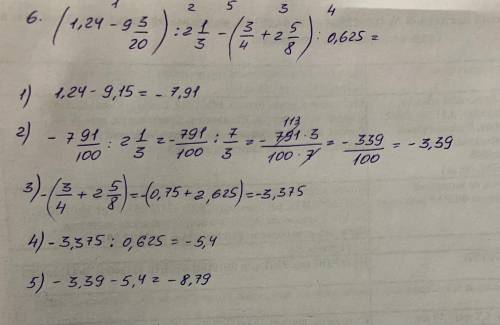 1 2 5 3 4
6. (1,24 - 9 3/20) : 2 1/3 - (3/4 + 2 5/8) : 0,625 =
1) 1,24 - 9,15 = - 7,91
2) - 7 91/100 : 2 1/3 = - 791/100 : 7/3 = - 113 791·3/100·7 = - 339/100 = - 3,39
3) -(3/4 + 2 5/8) = -(0,75 + 2,625) = -3,375
4) - 3,375 : 0,625 = -5,4
5) - 3,39 - 5,4 = - 8,79